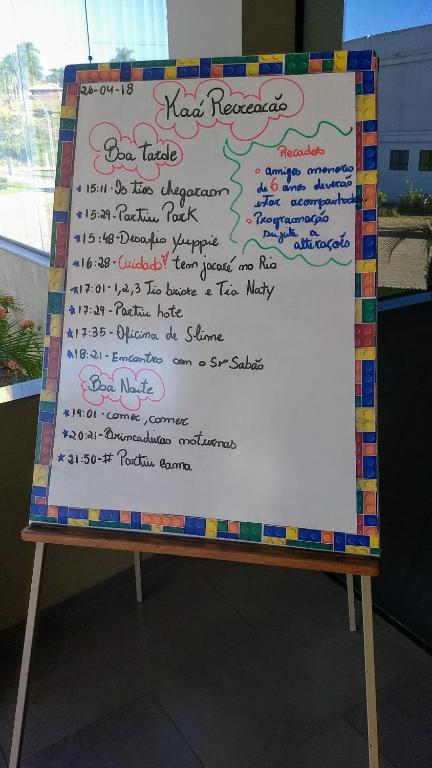 26-04-18
Kaá Recreação
Boa tarde
15:11-Os tios chegaram
15:29-Partiu Park
15:48-Desafio Yuppie
16:28-Cuidado! tem jacaré no Rio
17:01-1,2,3 Tio briote e Tia Naty
17:29-Partiu hote
17:35-Oficina de Slime
18:21-Encontro com o Sr Sabão
Boa Noite
19:01-comer, comer
20:21-Brincadeiras noturnas
21:50-# Partiu cama
Recados
amigos menores
de 6 anos deverão
estar acompanhados
Programação
sujeita a
alterações